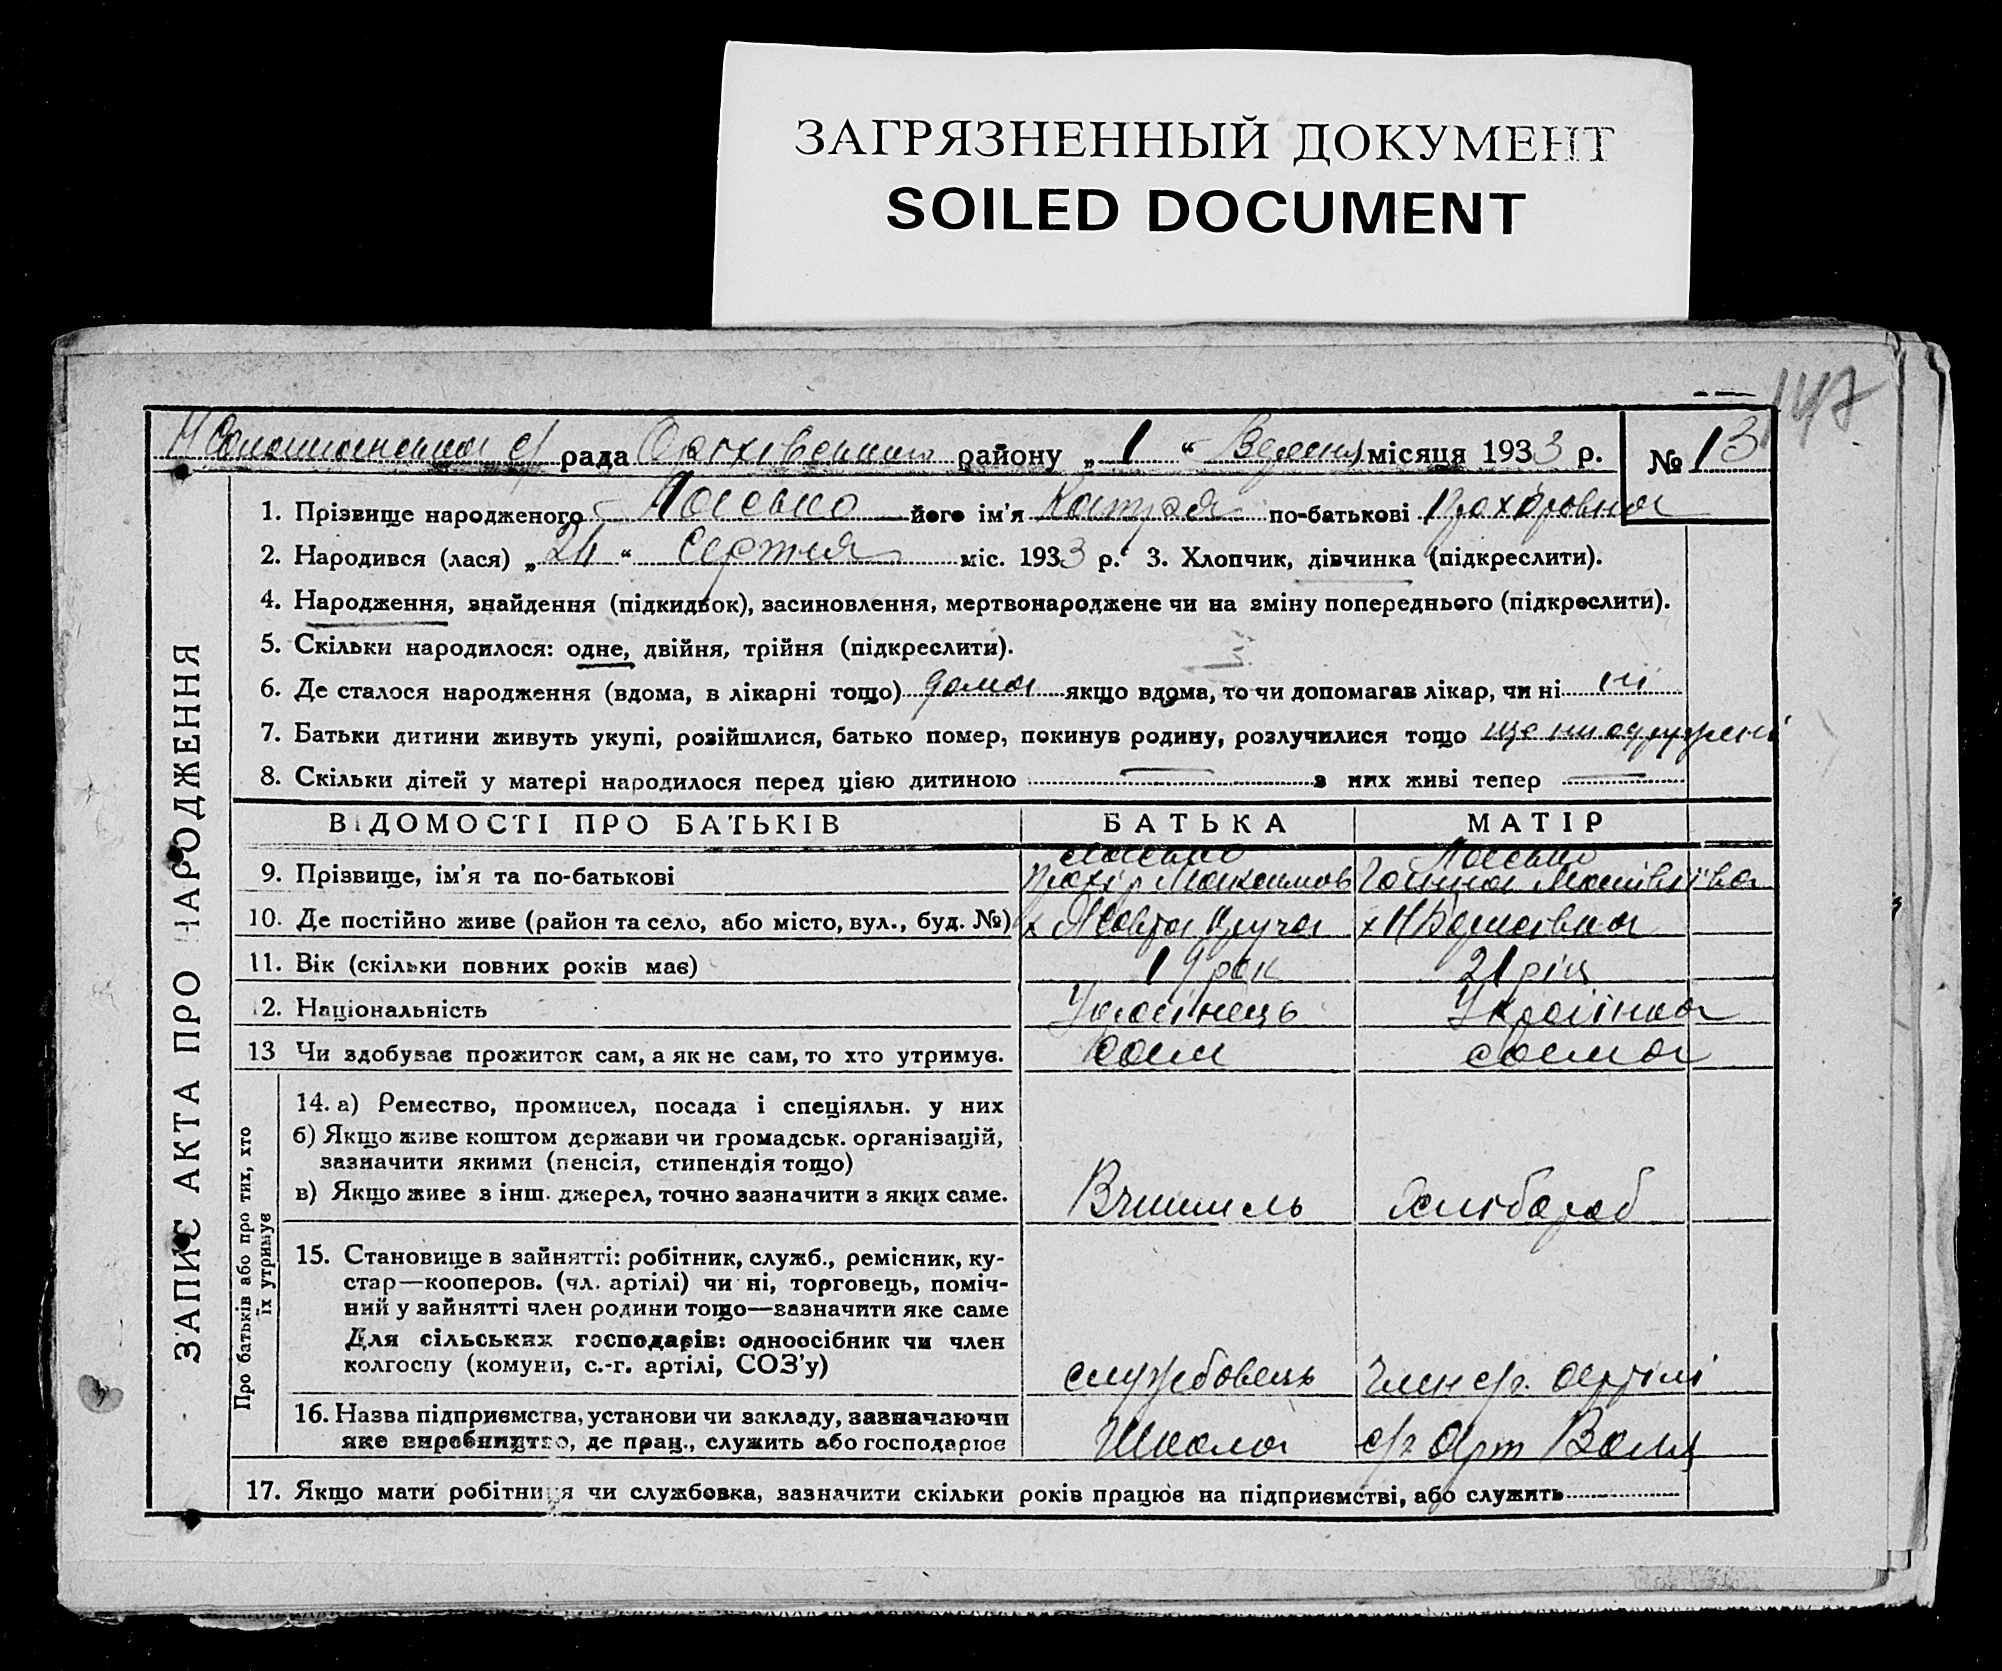 ЗАГРЯЗНЕННЫЙ ДОКУМЕНТ
SOILED DOCUMENT
147
рада району „ 1 “ Вересня місяця 1933 р. № 13
1. Прізвище народженого його ім'я Катря по-батькові Прохоровна
2. Народився (лася) „ 24 “ Серпня міс. 1933 р. 3. Хлопчик, дівчинка (підкреслити).
4. Народження, знайдення (підкидьок), засиновлення, мертвонароджене чи на зміну попереднього (підкреслити).
5. Скільки народилося: одне, двійня, трійня (підкреслити).
6. Де сталося народження (вдома, в лікарні тощо) дома якщо вдома, то чи допомагав лікар, чи ні ні
7. Батьки дитини живуть укупі, розійшлися, батько помер, покинув родину, розлучилися тощо
8. Скільки дітей у матері народилося перед цією дитиною — з них живі тепер —
ВІДОМОСТІ ПРО БАТЬКІВ БАТЬКА МАТІР
9. Прізвище, ім'я та по-батькові Прохір Максимов
10. Де постійно живе (район та село, або місто, вул., буд. №)
11. Вік (скільки повних років має) 19 рок 21 рік
12. Національність Українець Українка
13 Чи здобуває прожиток сам, а як не сам, то хто утримує. сам сама
14. а) Ремество, промисел, посада і спеціяльн. у них
б) Якщо живе коштом держави чи громадськ. організацій,
зазначити якими (пенсія, стипендія тощо)
в) Якщо живе з інш. джерел, точно зазначити з яких саме. Вчитель Хлібороб
15. Становище в зайнятті: робітник, служб., ремісник, ку-
стар—кооперов. (чл. артілі) чи ні, торговець, поміч-
ний у зайнятті член родини тощо—зазначити яке саме
Для сільських господарів: одноосібник чи член
колгоспу (комуни, с.-г. артілі, СОЗ'у) службовець член с/г. артілі
16. Назва підприємства, установи чи закладу, зазначаючи
яке виробництво, де прац., служить або господарює Школа с/г арт Воля
17. Якщо мати робітниця чи службовка, зазначити скільки років працює на підприємстві, або служить
ЗАПИС АКТА ПРО НАРОДЖЕННЯ
Про батьків або про тих, хто
їх утримує